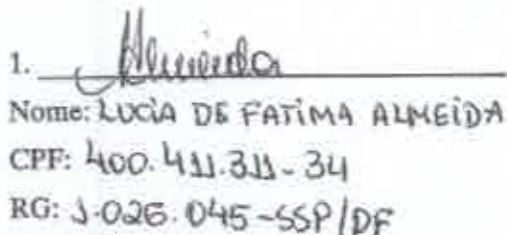 1. Almeida
Nome: LUCIA DE FATIMA ALMEIDA
CPF: 400.411.311-34
RG: 1.026.045-SSP/DF